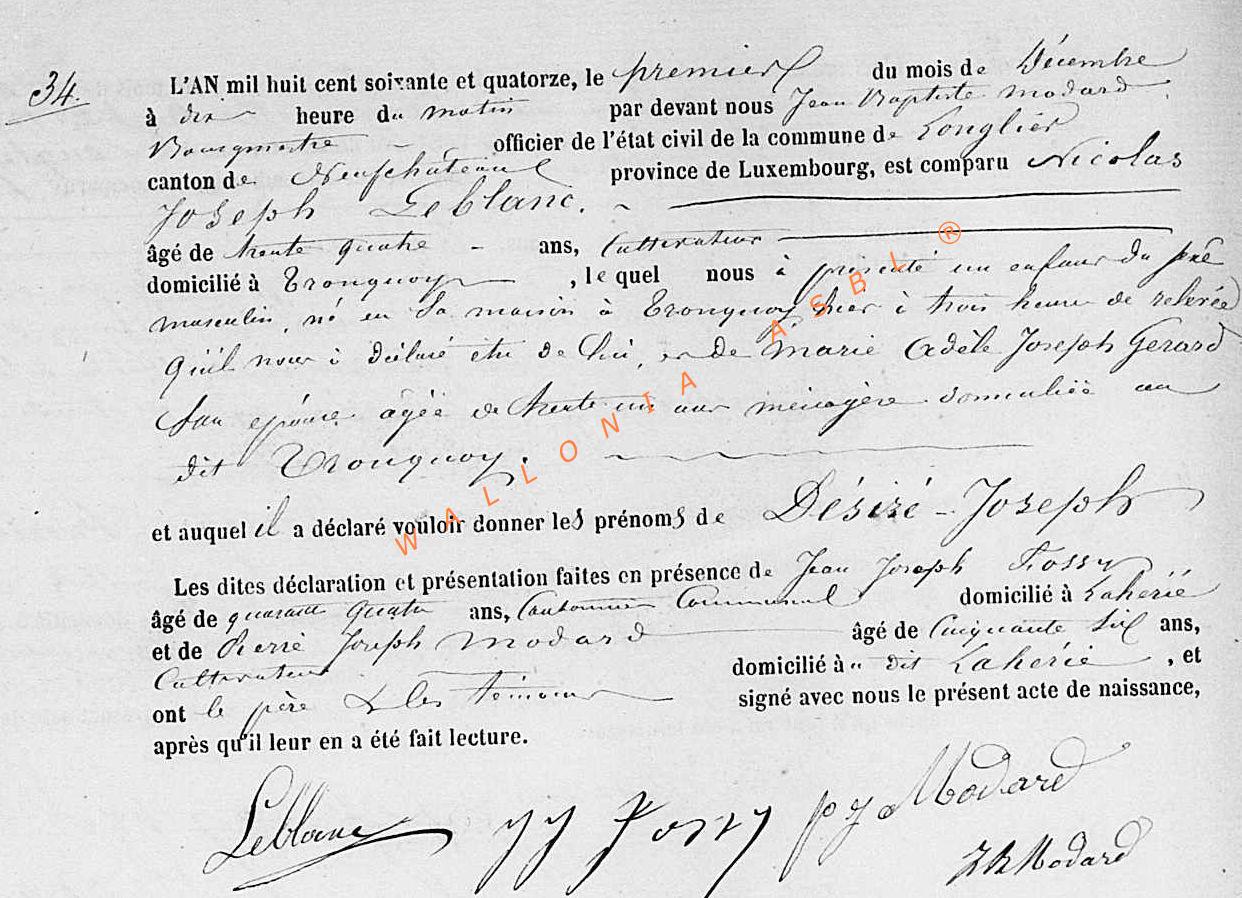 34.
L'AN mil huit cent soixante et quatorze, le premier du mois de Décembre
à dix heure du matin par devant nous Jean Baptiste Modard
Bourgmestre officier de l'état civil de la commune de Longlier
canton de Neufchâteau province de Luxembourg, est comparu Nicolas
Joseph Leblanc.
âgé de trente quatre ans, Cultivateur
domicilié à Tronquoy, lequel nous à présenté un enfant du sexe
masculin, né en sa maison à Tronquoy hier à trois heure de relevée
qu'il nous à déclaré être de lui, et de Marie Adèle Joseph Gerard
son épouse âgée de trente un ans ménagère domiciliée au
dit Tronquoy.
et auquel il a déclaré vouloir donner les prénoms de Désiré-Joseph
Les dites déclaration et présentation faites en présence de Jean Joseph Fossy
âgé de quarante quatre ans, Cantonnier Communal domicilié à Laherie
et de Pierre Joseph Modard âgé de Cinquante six ans,
Cultivateur domicilié à dit Laherie, et
ont le père & les témoins signé avec nous le présent acte de naissance,
après qu'il leur en a été fait lecture.
Leblanc JJ Fossy PJ Modard
JB Modard
WALLONIA ASBL ®